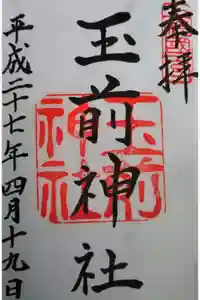 奉拝
玉前神社
玉前神社
平成二十七年四月十九日